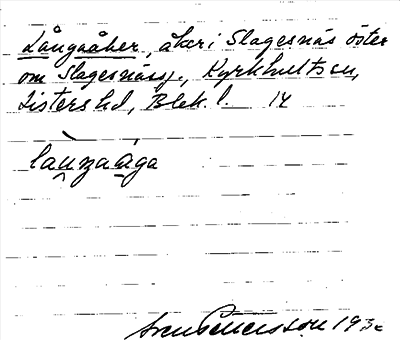 Långaåker, åker i Slagesnäs öster
om Slagesnässj., Kyrkhults sn,
Listers hd, Blek. l. 14
lau̯ngaåga
Sven Benson 193